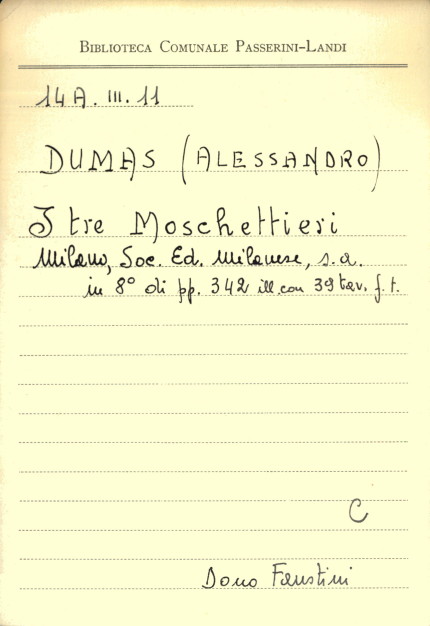 BIBLIOTECA COMUNALE PASSERINI-LANDI
14A. III. 11
DUMAS (ALESSANDRO)
I tre Moschettieri
Milano, Soc. Ed. Milanese, s.a.
in 8° di pp. 342 ill. con 39 tav. f. t.
C
Dono Faustini